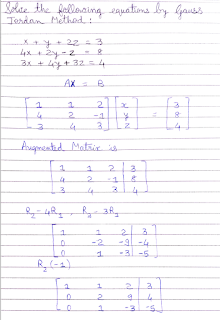 Solve the following equations by Gauss
Jordan Method :
x + y + 2z = 3
4x + 2y - z = 8
3x + 4y + 3z = 4
AX = B
[ 1 1 2 ] [ x ] = [ 3 ]
[ 4 2 -1 ] [ y ] [ 8 ]
[ 3 4 3 ] [ z ] [ 4 ]
Augmented Matrix is
[ 1 1 2 | 3 ]
[ 4 2 -1 | 8 ]
[ 3 4 3 | 4 ]
R₂ - 4R₁ , R₃ - 3R₁
[ 1 1 2 | 3 ]
[ 0 -2 -9 | -4 ]
[ 0 1 -3 | -5 ]
R₂ (-1)
[ 1 1 2 | 3 ]
[ 0 2 9 | 4 ]
[ 0 1 -3 | -5 ]